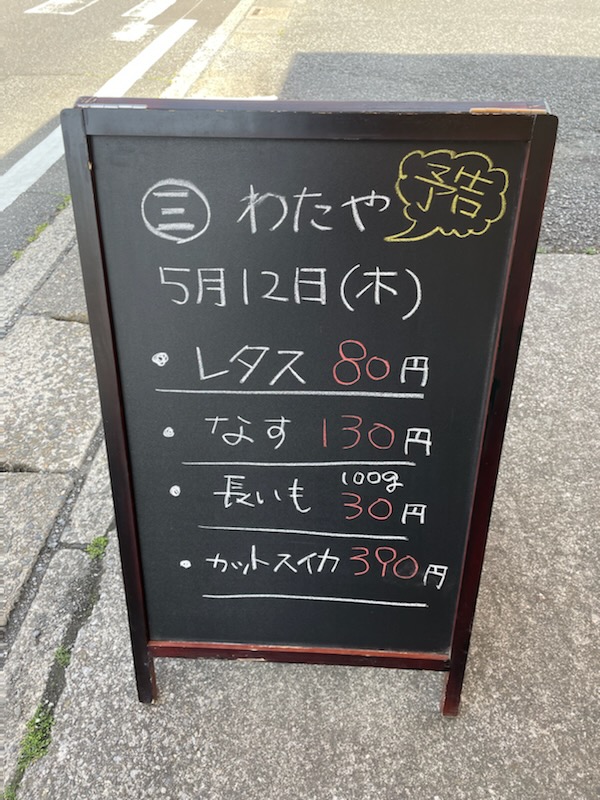 ㊂ わたや 予告
5月12日(木)
・レタス 80円
・なす 130円
・長いも 100g 30円
・カットスイカ 390円